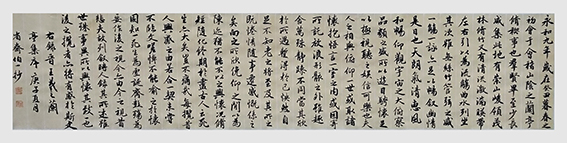 永和九年歲在癸丑暮春之
初會于會稽山陰之蘭亭
脩稧事也羣賢畢至少長咸
集此地有崇山峻領茂
林脩竹又有清流激湍暎帶
左右引以為流觴曲水列坐
其次雖無絲竹管弦之盛
一觴一詠亦足以暢敘幽情
是日也天朗氣清惠風
和暢仰觀宇宙之大俯察
品類之盛所以遊目騁懷足
以極視聽之娛信可樂也夫
人之相與俯仰一世或取諸
懷抱悟言一室之內或因寄
所託放浪形骸之外雖趣
舍萬殊靜躁不同當其欣
於所遇暫得於己快然自
足不知老之將至及其所之
既惓情隨事遷感慨係之
矣向之所欣俛仰之間以為
陳迹猶不能不以之興懷況脩
短隨化終期於盡古人云死
生亦大矣豈不痛哉每攬昔
人興感之由若合一契未嘗
不臨文嗟悼不能喻之於懷
固知一死生為虛誕齊彭殤為
妄作後之視今亦由今之視昔
悲夫故列敘時人錄其所述雖
世殊事異所以興懷其致一也
後之攬者亦將有感於斯文
右錄晉王羲之蘭
亭集序 庚子五月